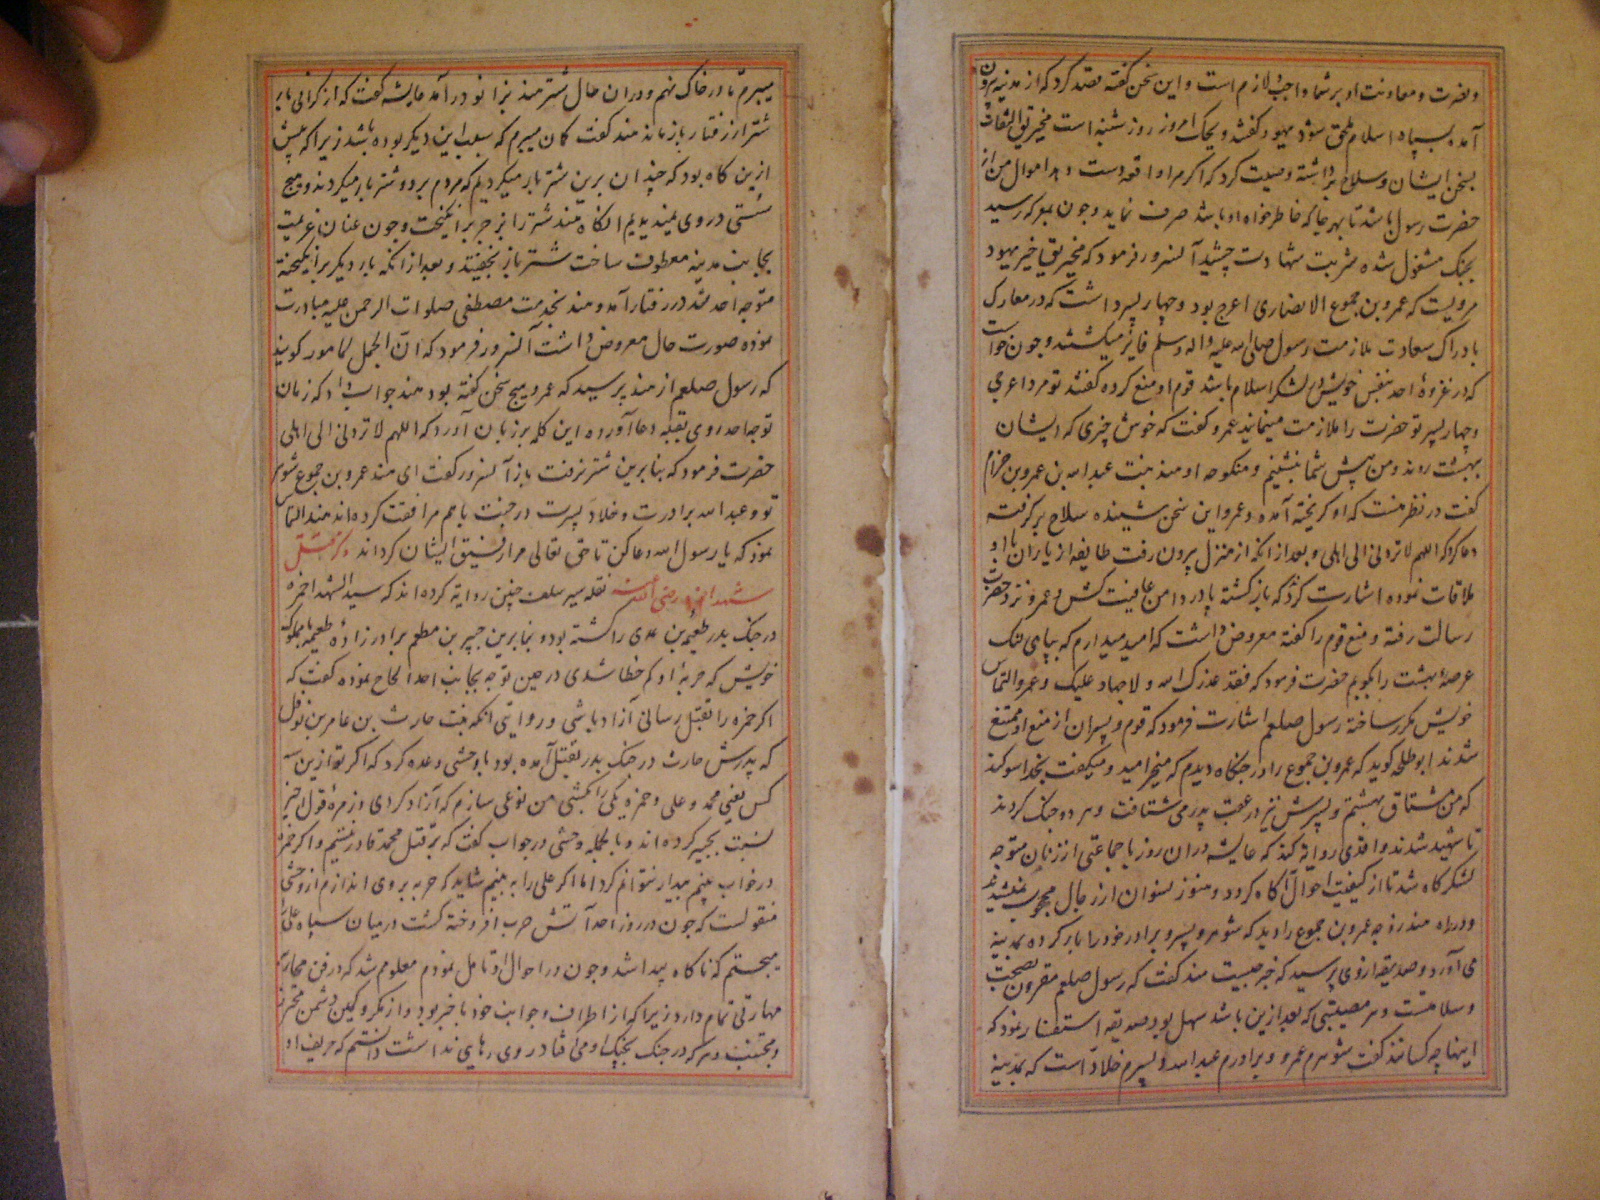 ونصرت و معاونت او بر شما واجب و لازم است و این سخن گفته قصد کرد که از مدینه بیرون
آمده بسپاه اسلام ملحق شود یهود گفتند ویحک امروز روز شنبه است مخیریق التفات
بسخن ایشان وسلاح برداشته وصیت کرد که اکر مرا واقعه دست دهد اموال من از
حضرت رسول باشد تا بهر جا که خاطر خواه او باشد صرف نماید و چون بمعرکه رسید
بجنک مشغول شده شربت شهادت چشید آنسرور فرمود که مخیریق خیر یهود
مرویست که عمرو بن جموع الانصاری اعرج بود و چهار پسر داشت که در معارک
بادراک سعادت ملازمت رسول صلی الله علیه واله وسلم فایز میکشتند و چون خواست
که در غزوهٔ احد بنفس خویش در لشکر اسلام باشد قوم او منع کرده گفتند تو مرد اعرجی
و چهار پسر تو حضرت را ملازمت مینمایند عمرو گفت که خوش چیزی که ایشان
ببهشت روند و من پیش شما بنشینم و منکوحه او هند بنت عبد الله بن عمرو بن حزام
گفت در نظر منست که او کریخته آمده و عمرو این سخن شنیده سلاح بر گرفت
دعا کرد که اللهم لا تردنی الی اهلی و بعد از انکه از منزل بیرون رفت طایفه از یاران با او
ملاقات نموده اشارت کردند که باز کشته پا در دامن عافیت کش و عمرو نزد حضرت
رسالت رفته و منع قوم را گفته معروض داشت که امید میدارم که بپای لنک
عرصهٔ بهشت را بپویم حضرت فرمود که فقد عذرک الله و لا جهاد علیک و عمرو التماس
خویش مکرر ساخته رسول صلعم اشارت فرمود که قوم و پسران از منع او ممتنع
شدند ابو طلحه کوید که عمرو بن جموع را در جنکاه دیدم که میخرامید و میکفت بخدا سوکند
که من مشتاق بهشتم و پسرش نیز در عقب پدر می شتافت و هر دو جنک کردند
تا شهید شدند واقدی روایة کند که عایشه در ان روز با جماعتی از زنان متوجه
لشکر کاه شد تا از کیفیت احوال آکاه کردد و هنوز نسوان از رجال محجوب نمیشدند
و در راه هند زوجه عمرو بن جموع را دید که شوهر و پسر و برادر خود را بار کرده بمدینه
می آورد و صدیقه از وی پرسید که خبر چیست هند گفت که رسول صلعم مقرون بصحت
و سلامتست و هر مصیبتی که بعد ازین باشد سهل بود صدیقه استفسار نمود که
اینها چه کسانند گفت شوهرم عمرو و برادرم عبد الله و پسرم خلاد است که بمدینه
میبرم تا در خاک نهم و در ان حال شتر هند بزانو در آمد عایشه گفت که از کرانی بار
شتر از رفتار باز ماند هند گفت کمان میبرم که سبب این دیکر بوده باشد زیرا که پیش
ازین کاه بود که چند ان برین شتر بار میکردیم که مردم بر دو شتر بار میکردند و هیچ
سستی در وی نمیدیدیم انکاه هند شتر را بزجر بر انکیخت و چون عنان عزیمت
بجانب مدینه معطوف ساخت شتر باز بخفتید و بعد از انکه بار دیکر بر انکیخته
متوجه احد شد در رفتار آمد و هند بخدمت مصطفی صلوات الرحمن علیه مبادرت
نموده صورت حال معروض داشت آنسرور فرمود که انّ الجمل لمامور کویند
که رسول صلعم از هند پرسید که عمرو هیچ سخن گفته بود هند جواب داد که زمان
توجه احد روی بقبله دعا آورده این کلمه بر زبان آورد که اللهم لا تردنی الی اهلی
حضرت فرمود که بنا برین شتر نرفت باز آنسرور گفت ای هند عمرو بن جموع شوهر
تو و عبد الله برادرت و خلاد پسرت در جنت با هم مرافقت کرده اند هند التماس
نمود که یا رسول الله دعا کن تا حق تعالی مرا رفیق ایشان کرداند ذکر مقتل
سید الشهدا حمزه رضی الله عنه نقله سیر سلف چنین روایة کرده اند که سید الشهدا حمزه
در جنک بدر طعیمة بن عدی را کشته بود و بنا برین جبیر بن مطعم برادر زادهٔ طعیمه با مملوک
خویش که حربهٔ او کم خطا شدی در حین توجه بجانب احد الحاح نموده گفت که
اکر حمزه را بقتل رسانی آزاد باشی و روایتی انکه بنت حارث بن عامر بن نوفل
که پدرش حارث در جنک بدر بقتل آمده بود با وحشی وعده کرد که اکر تو ازین سه
کس یعنی محمد و علی و حمزه یکی را بکشی من نوعی سازم که آزاد کردی و زمرهٔ قول اخیر
نسبت بجبیر کرده اند و با لجمله وحشی در جواب گفت که بر قتل محمد قادر نیستم و اکر حمزه
در خواب بینم بیدار نتوانم کرد اما اکر علی را به بینم شاید که حربه بر وی اندازم از وحشی
منقولست که چون در روز احد آتش حرب افروخته کشت در میان سپاه علی
میجستم که ناکاه پیدا شد و چون در احوال او تامل نمودم معلوم شد که در فن محاربه
مهارتی تمام دارد زیرا که از اطراف و جوانب خود با خبر بود و از مکر و کمین دشمن محترز
و مجتنب و هر که در جنک بچنک او می افتاد روی رهایی نداشت دانستم که حریف او